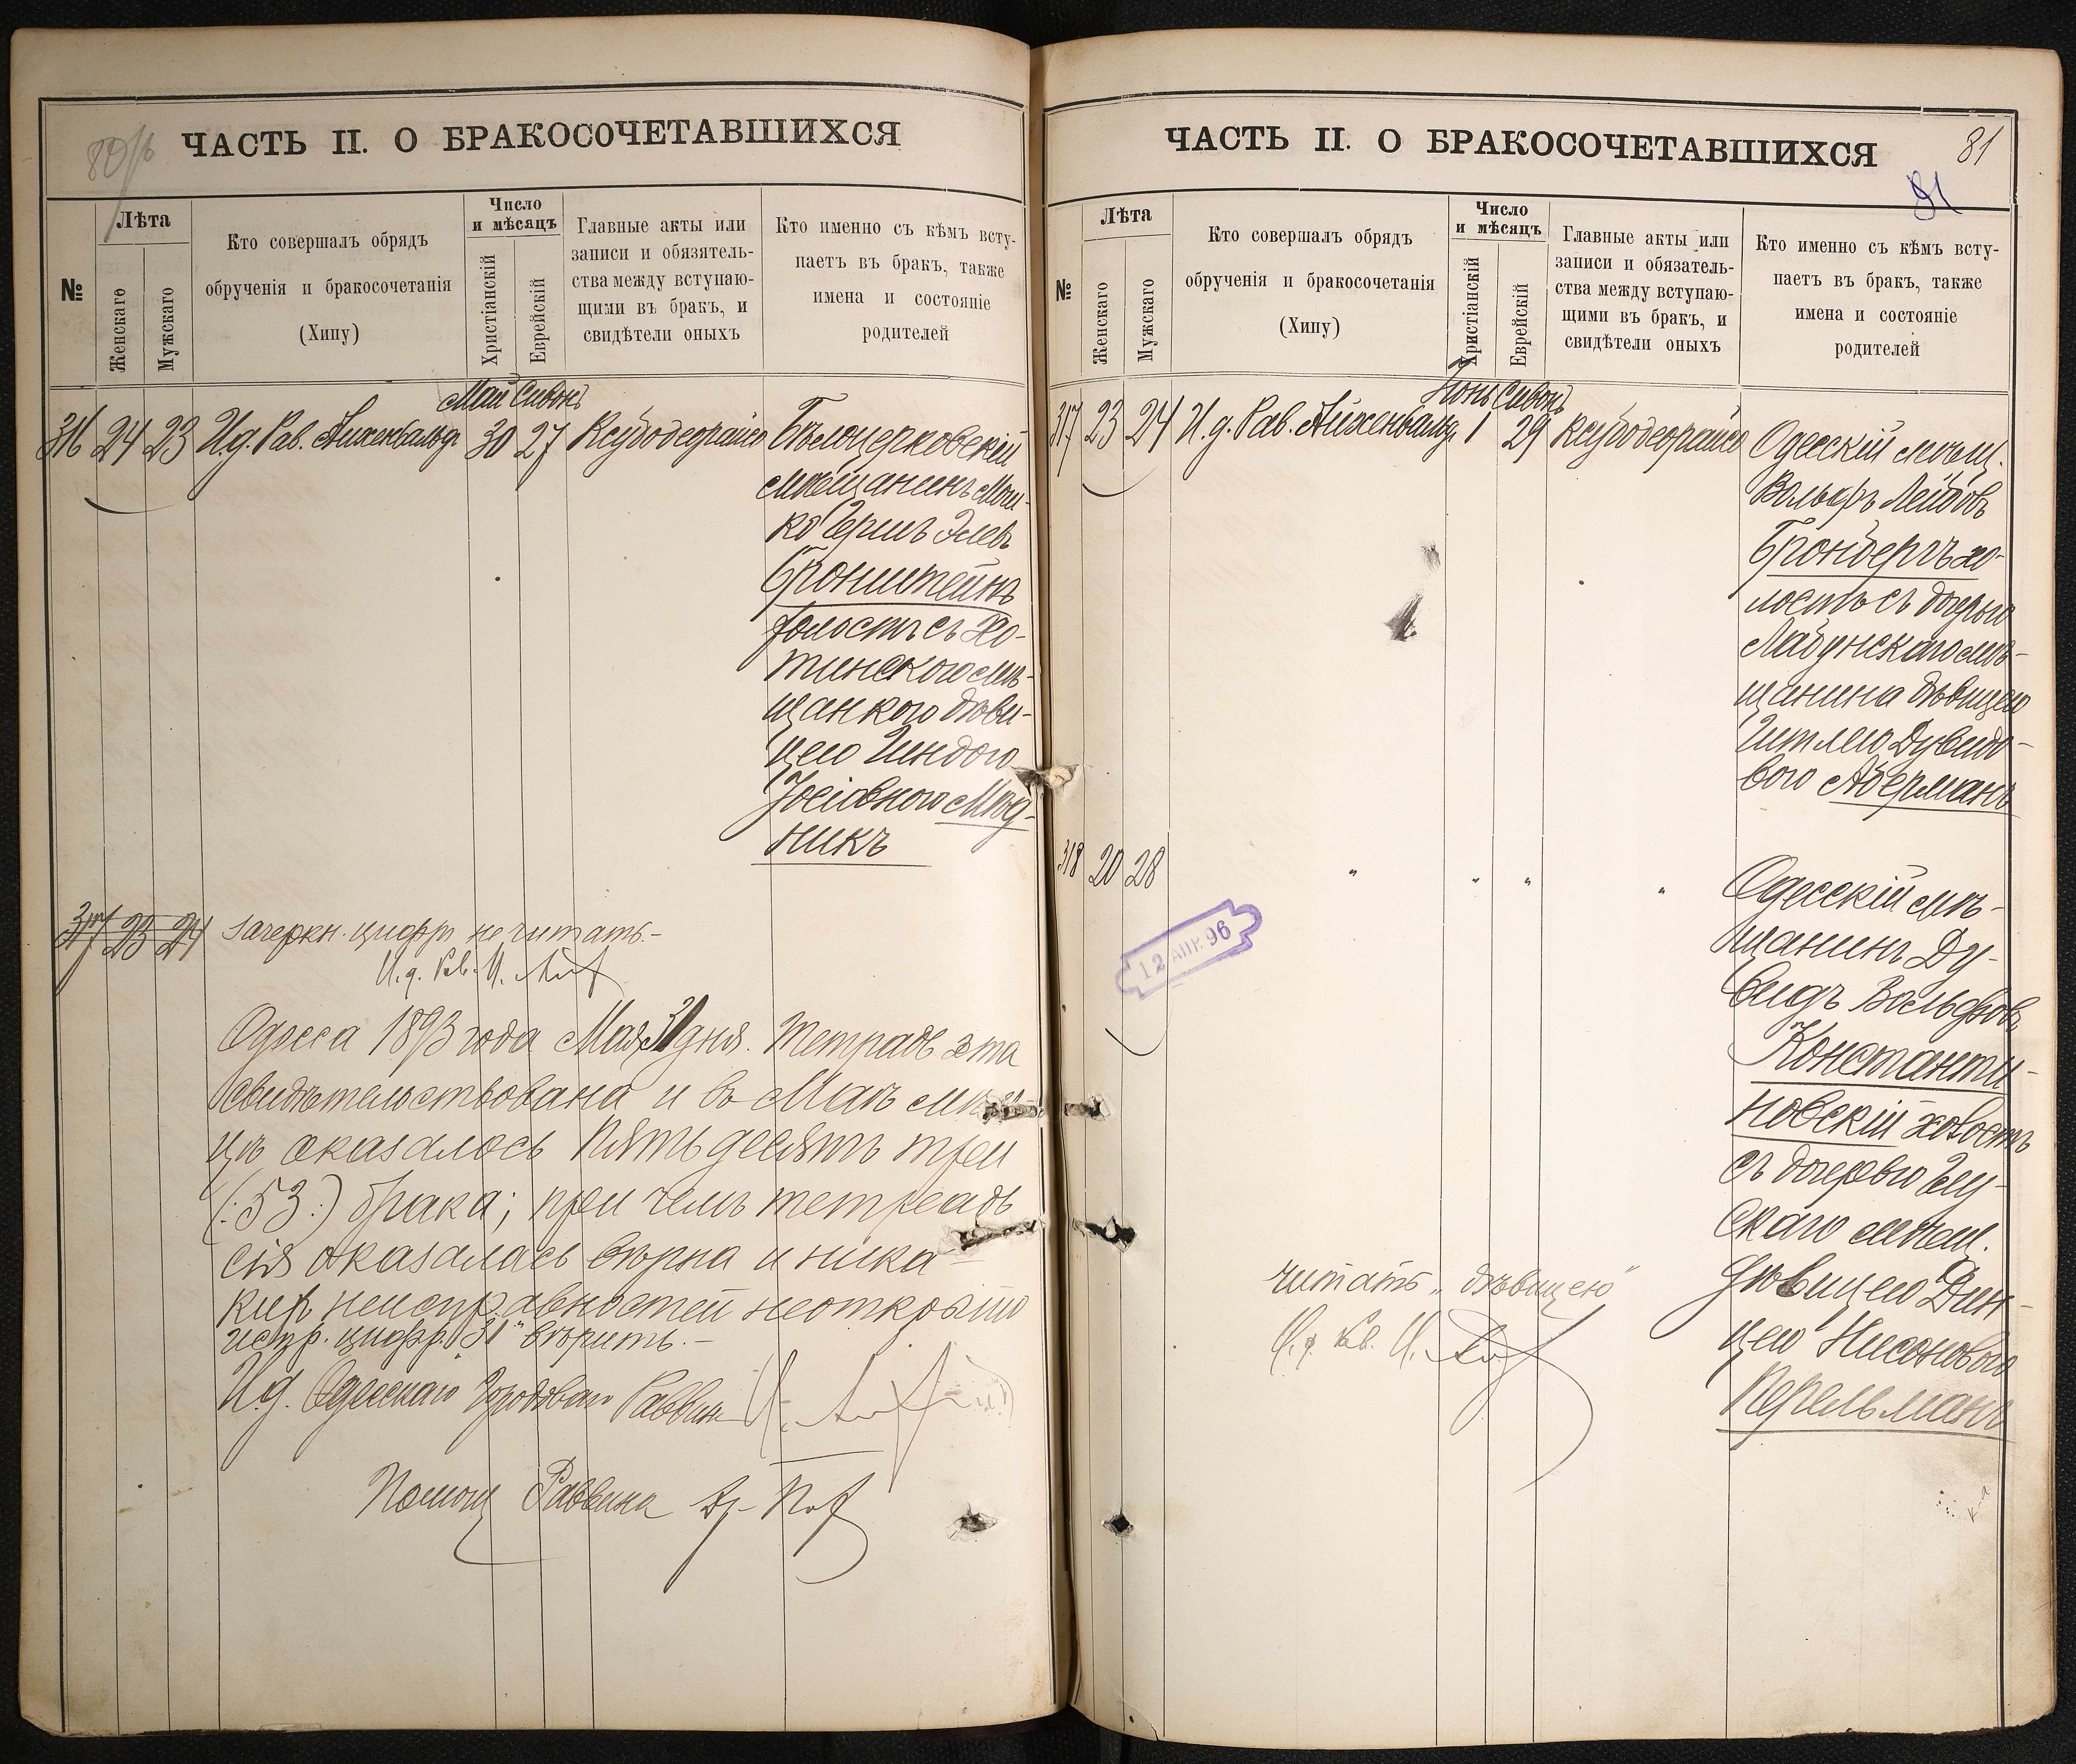 80/б
ЧАСТЬ II. О БРАКОСОЧЕТАВШИХСЯ
№
Лѣта
Женскаго
Мужскаго
Кто совершалъ обрядъ
обрученія и бракосочетанія
(Хипу)
Число
и мѣсяцъ
Христіанскій
Еврейскій
Главные акты или
записи и обязатель-
ства между вступаю-
щими въ бракъ, и
свидѣтели оныхъ
Кто именно съ кѣмъ всту-
паетъ въ бракъ, также
имена и состояніе
родителей
Май Сивонъ
316 24 23 И.д. Рав. Айхенвальд 30 27 Ксубодеорайсо Бѣлоцерковскій
мѣщанинъ Мош-
ко Гершъ Элевъ
Бронштейнъ
холостъ съ Хо-
тинскою мѣ-
щанкою дѣви-
цею Гиндою
Іосіовною Мѣд-
никъ
317 23 24 зачеркн. цифр. не читать.-
И. д. Рав. И.
Одесса 1893 года Мая 31 дня. Тетрадь эта
свидѣтельствована и въ Маѣ мѣся-
цѣ оказалось пятьдесятъ три
(:53:) брака; при чемъ тетрадь
сія оказалась вѣрна и ника-
кихъ неисправностей неоткрыто
испр. цифр. "31" вѣрить.-
И.д. Одесскаго Городоваго Раввина
Помощ Раввина
ЧАСТЬ II. О БРАКОСОЧЕТАВШИХСЯ
81
81
№
Лѣта
Женскаго
Мужскаго
Кто совершалъ обрядъ
обрученія и бракосочетанія
(Хипу)
Число
и мѣсяцъ
Христіанскій
Еврейскій
Главные акты или
записи и обязатель-
ства между вступаю-
щими въ бракъ, и
свидѣтели оныхъ
Кто именно съ кѣмъ всту-
паетъ въ бракъ, также
имена и состояніе
родителей
Іюнь Сивонъ
317 23 24 И.д. Рав. Айхенвальд 1 29 Ксубодеорайсо Одесскій мѣщ.
Вольфъ Лейбовъ
Гронбергъ хо-
лостъ съ дочерью
Лабунскаго мѣ-
щанина дѣвицею
Гитлею Дувидо-
вою Аберманъ
318 20 28 " " " " Одесскій мѣ-
щанинъ Ду-
видъ Вольфовъ
Константи-
новскій холостъ
съ дочерью
скаго мѣщ.
дѣвицею Дин-
цею Нисоновою
Перельманъ
12 АПР. 96
читать "дѣвицею"
И. д. Рав. И.